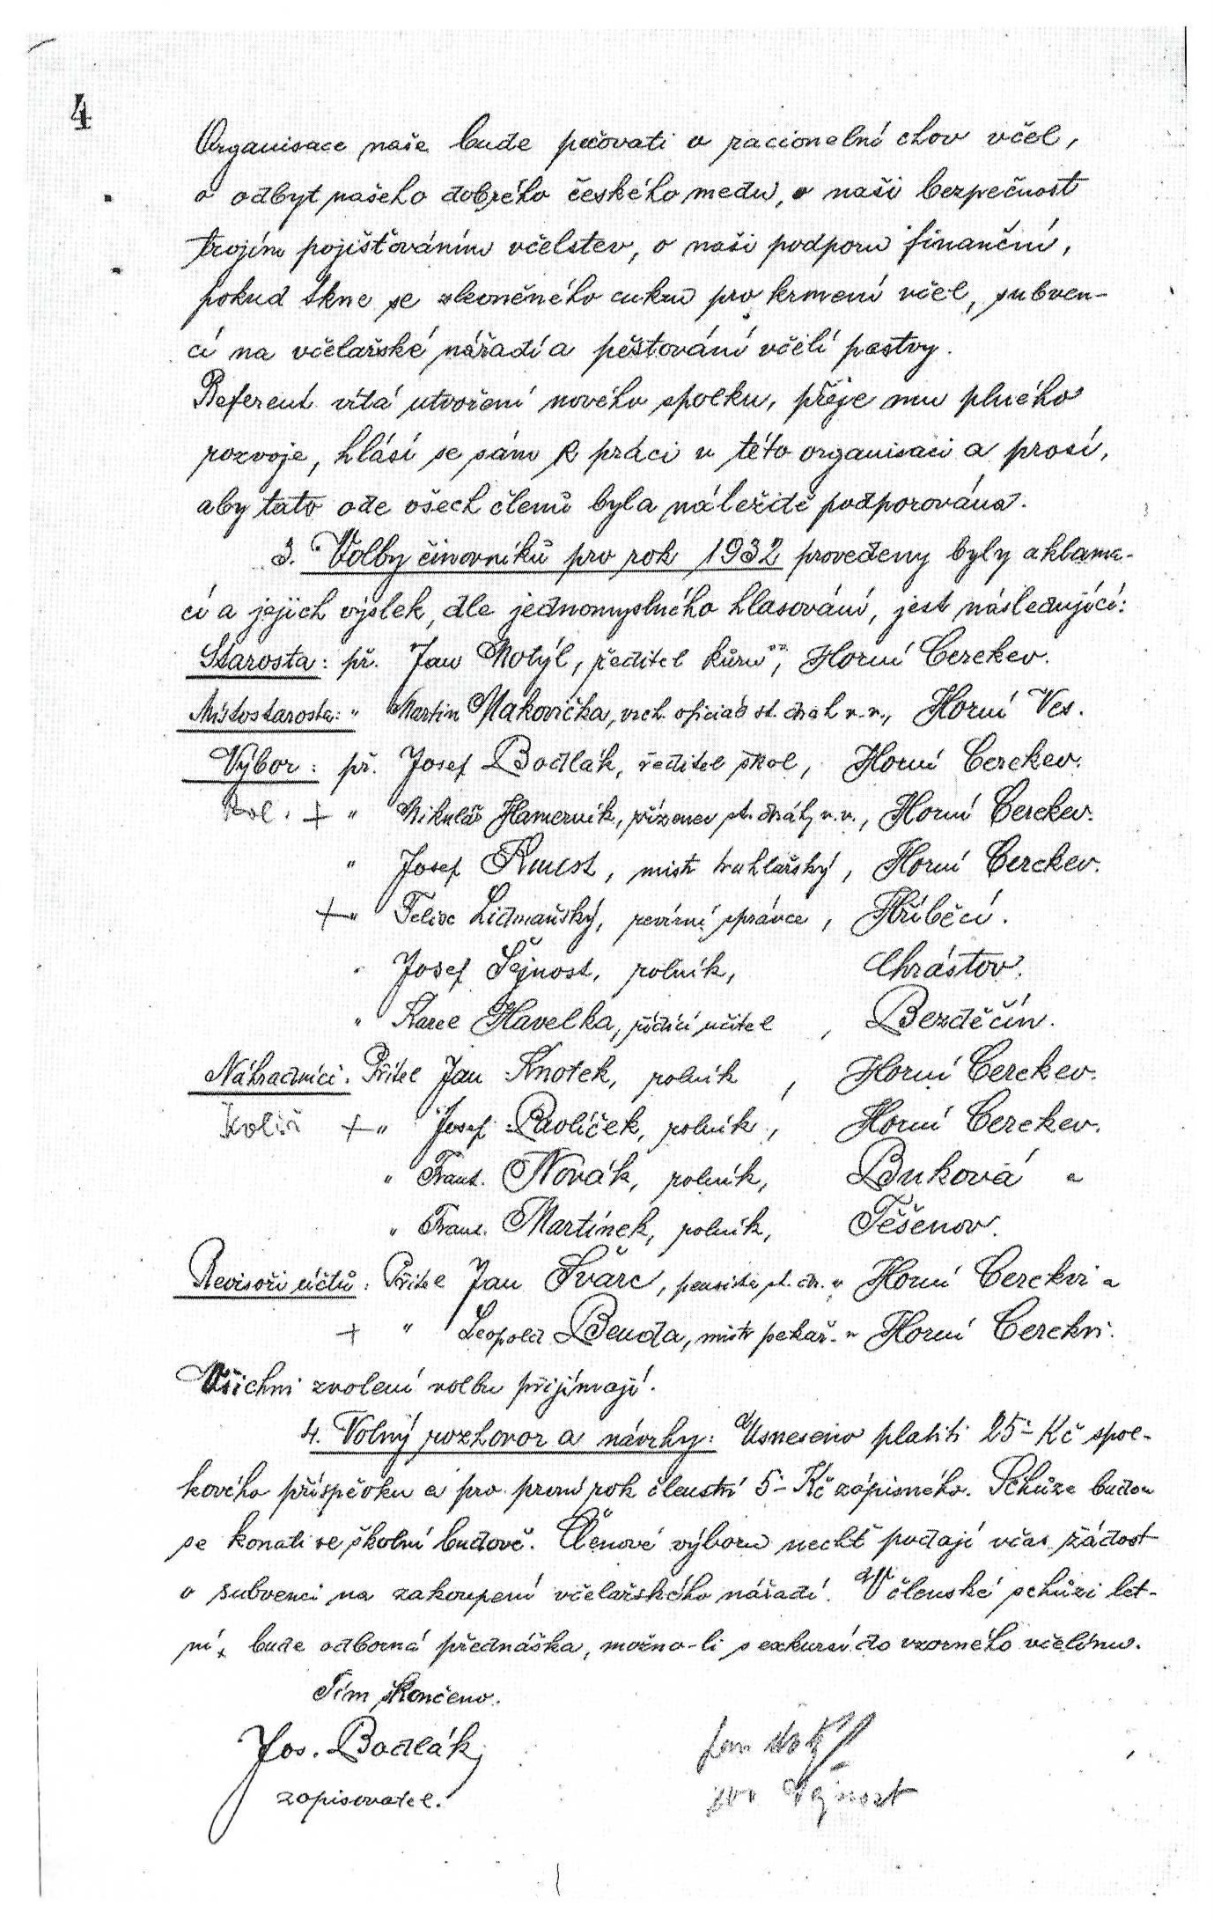 4
Organisace naše bude pečovati o racionelní chov včel,
o odbyt našeho dobrého českého medu, o naši bezpečnost
trojím pojišťováním včelstev, o naši podporu finanční,
pokud tkne se zlevněného cukru pro krmení včel, subven-
cí na včelařské nářadí a pěstování včelí pastvy.
Referent vítá utvoření nového spolku, přeje mu plného
rozvoje, hlásí se sám k práci v této organisaci a prosí,
aby tato ode všech členů byla náležitě podporována.
3. Volby činovníků pro rok 1932 provedeny byly aklama-
cí a jejich výslek, dle jednomyslného hlasování, jest následující:
Starosta: př. Jan Motýl, ředitel kůru, Horní Cerekev.
Místostarosta: " Martin Makovička, vrch. oficiál st. drah v.v., Horní Ves.
Výbor: př. Josef Bodlák, ředitel škol, Horní Cerekev.
+ " Mikuláš Hamerník, zřízenec st. dráhy v.v., Horní Cerekev.
" Josef , mistr truhlářský, Horní Cerekev.
+ " Felix Lidmaňský, revírní správce, Hříběcí.
" Josef Šejnost, rolník, Chrástov.
" Karel Havelka, řídící učitel, Bezděčín.
Náhradníci: Přítel Jan Knotek, rolník, Horní Cerekev.
+ " Josef Pavlíček, rolník, Horní Cerekev.
" Frant. Novák, rolník, Buková a
" Frant. Martínek, rolník, Těšenov.
Revisoři účtů: Přítel Jan Švarc, pensista st. dr. v Horní Cerekvi a
+ " Leopold Benda, mistr pekař. v Horní Cerekvi.
Všichni zvolení volbu přijímají.
4. Volný rozhovor a návrhy: Usneseno platiti 25- Kč spol-
kového příspěvku a pro první rok členství 5- Kč zápisného. Schůze budou
se konati ve školní budově. Členové výboru nechť podají včas žádost
o subvenci na zakoupení včelařského nářadí. Při členské schůzi let-
ní, bude odborná přednáška, možno-li s exkursí do vzorného včelínu.
Tím skončeno.
Jos. Bodlák, Jan Motýl
zapisovatel. Šejnost